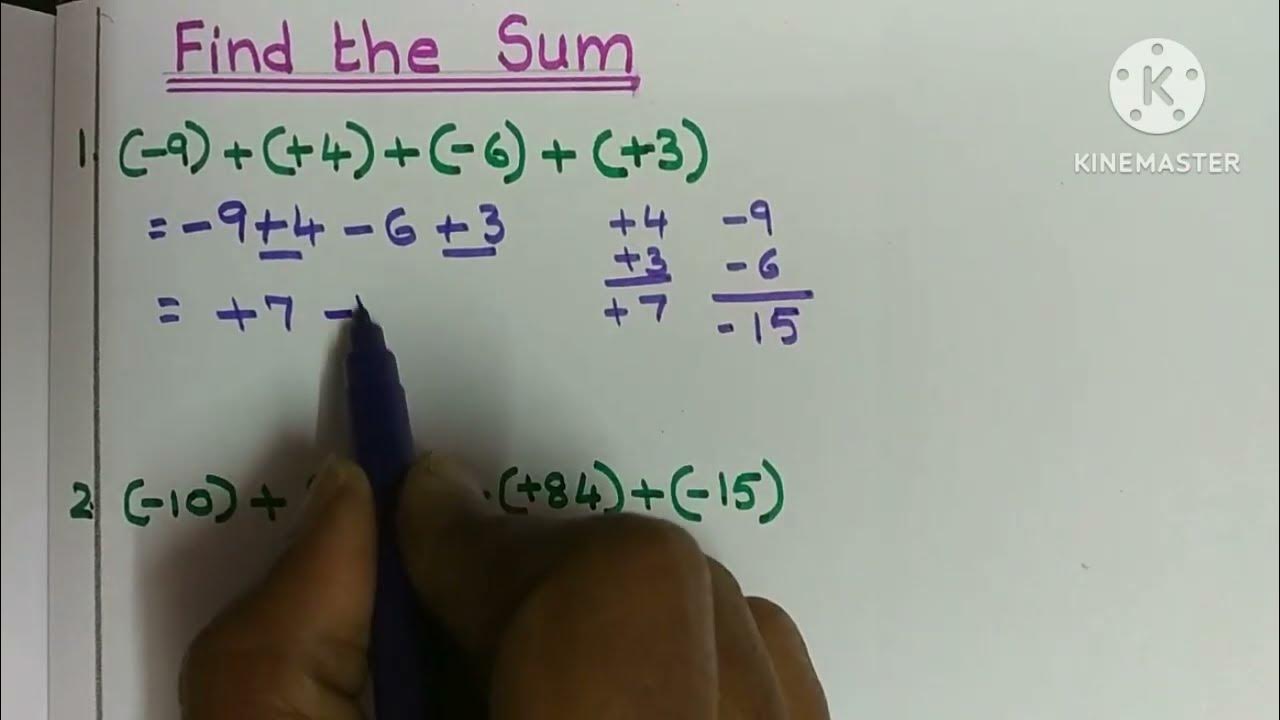 Find the Sum
K
KINEMASTER
1. (-9) + (+4) + (-6) + (+3)
= -9 +4 - 6 +3
+4 -9
+3 -6
= +7 -
+7 -15
2. (-10) + (+84) + (-15)